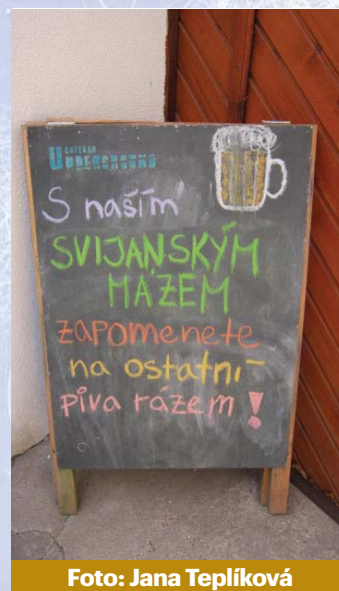 CAFÉBAR
UNDERGROUND
S naším
SVIJANSKÝM
MÁZEM
zapomenete
na ostatní
piva rázem!
Foto: Jana Teplíková